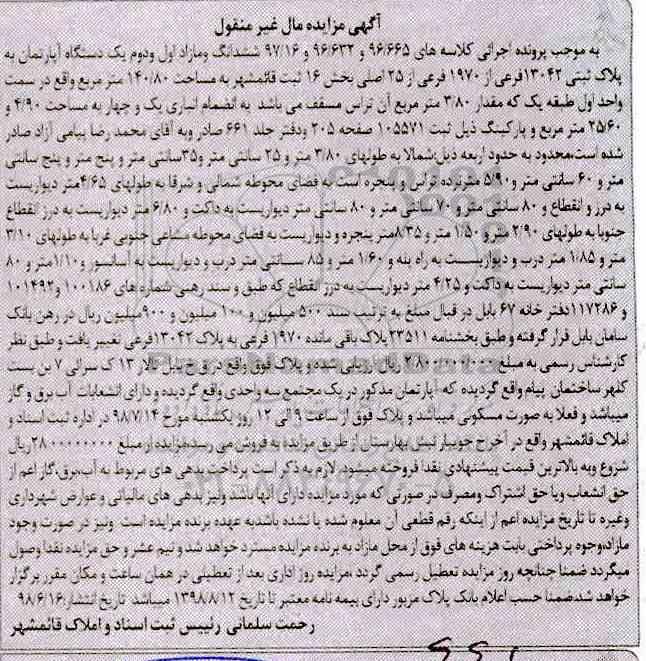 آگهی مزایده مال غیر منقول
به موجب پرونده اجرائی کلاسه های ۹۶/۶۶۵ و ۹۶/۶۳۲ و ۹۷/۱۶ ششدانگ ومازاد اول ودوم یک دستگاه آپارتمان به
پلاک ثبتی ۱۳۰۴۲فرعی از ۱۹۷۰ فرعی از ۲۵ اصلی بخش ۱۶ ثبت قائمشهر به مساحت ۱۴۰/۸۰ متر مربع واقع در سمت
واحد اول طبقه یک که مقدار ۳/۸۰ متر مربع آن تراس مسقف می باشد به انضمام انباری یک و چهار به مساحت ۴/۹۰ و
۲۵/۶۰ متر مربع و پارکینگ ذیل ثبت ۱۰۵۵۷۱ صفحه ۲۰۵ ودفتر جلد ۶۶۱ صادر وبه آقای محمد رضا پیامی آزاد صادر
شده است،محدود به حدود اربعه ذیل:شمالا به طولهای ۳/۸۰ متر و ۲۵ سانتی متر و۳۵سانتی متر و پنج متر و پنج سانتی
متر و ۶۰ سانتی متر و۵/۹۰ مترنرده تراس و پنجره است به فضای محوطه شمالی و شرقا به طولهای ۴/۶۵متر دیواریست
به درز و انقطاع و ۸۰ سانتی متر و ۷۰ سانتی متر و ۸۰ سانتی متر دیواریست به داکت و ۶/۸۰ متر دیواریست به درز انقطاع
جنوبا به طولهای ۲/۹۰ متر و ۱/۵۰ متر و ۸/۳۵متر پنجره و دیواریست به فضای محوطه مشاعی جنوبی غربا به طولهای ۳/۱۰
متر و ۱/۸۵ متر درب و دیواریست به راه پله و ۱/۶۰ متر و ۸۵ سانتی متر درب و دیواریست به آسانسور و۱/۱۰متر و ۸۰
سانتی متر دیواریست به داکت و ۴/۲۵ متر دیواریست به درز انقطاع که طبق و سند رهنی شماره های ۱۰۰۱۸۶ و۱۰۱۴۹۲
و ۱۱۷۲۸۶دفتر خانه ۶۷ بابل در قبال مبلغ به ترتیب سند ۵۰۰ میلیون و ۱۰۰ میلیون و ۹۰۰میلیون ریال در رهن بانک
سامان بابل قرار گرفته و طبق بخشنامه ۲۳۵۱۱ پلاک باقی مانده ۱۹۷۰ فرعی به پلاک ۱۳۰۴۲فرعی تغییر یافت و طبق نظر
کارشناس رسمی به مبلغ ۲۸۰۰۰۰۰۰۰۰ ریال ارزیابی شده و پلاک فوق واقع در ق خ بابل تالار ۱۳ ک سرائی ۷ بن بست
کلهر ساختمان پیام واقع گردیده که آپارتمان مذکور در یک مجتمع سه واحدی واقع گردیده و دارای انشعابات آب برق و گاز
میباشد و فعلا به صورت مسکونی میباشد و پلاک فوق از ساعت ۹ الی ۱۲ روز یکشنبه مورخ ۹۸/۷/۱۴ در اداره ثبت اسناد و
املاک قائمشهر واقع در آخر خ جویبار نبش بهارستان از طریق مزایده به فروش می رسد،مزایده از مبلغ ۲۸۰۰۰۰۰۰۰۰ریال
شروع وبه بالاترین قیمت پیشنهادی نقدا فروخته میشود.لازم به ذکر است پرداخت بدهی های مربوط به آب،برق،گاز اعم از
حق انشعاب ویا حق اشتراک ومصرف در صورتی که مورد مزایده دارای آنها باشد ونیز بدهی های مالیاتی و عوارض شهرداری
وغیره تا تاریخ مزایده اعم از اینکه رقم قطعی آن معلوم شده یا نشده باشدبه عهده برنده مزایده است ونیز در صورت وجود
مازاد،وجوه پرداختی بابت هزینه های فوق از محل مازاد به برنده مزایده مسترد خواهد شد و نیم عشر و حق مزایده نقدا وصول
میگردد ضمنا چنانچه روز مزایده تعطیل رسمی گردد ،مزایده روز اداری بعد از تعطیلی در همان ساعت و مکان مقرر برگزار
خواهد شد،ضمنا حسب اعلام بانک پلاک مزبور دارای بیمه نامه معتبر تا تاریخ ۱۳۹۸/۸/۱۲ میباشد تاریخ انتشار:۹۸/۶/۱۶
رحمت سلمانی رئییس ثبت اسناد و املاک قائمشهر